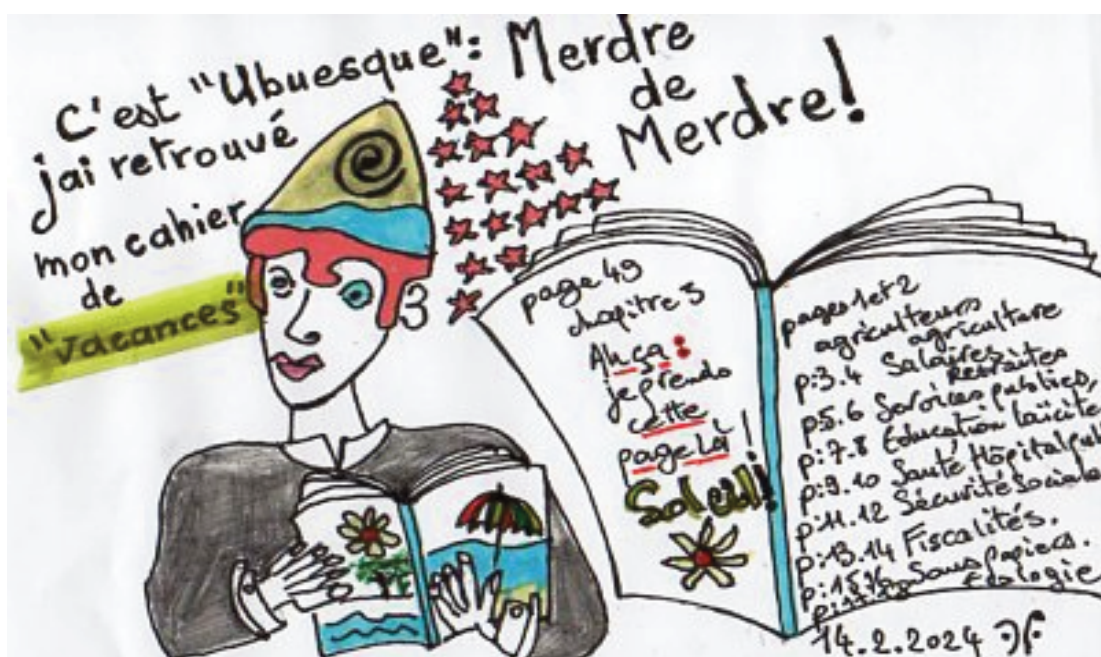 C'est "Ubuesque": Merdre
de
Merdre!
jai retrouvé
mon cahier
de
"Vacances"
page 49
chapitre 3
Ah ça:
je prends
cette
page là!
Soleil!
pages 1 et 2
agriculteurs
agriculture
p:3.4 Salaires
Retraites
p:5.6 Services publics,
p:7.8 Education laïcité
p:9.10 Santé Hôpital pub
p:11.12 Sécurité Sociale
p:13.14 Fiscalités.
Sans papiers.
Ecologie
14.2.2024